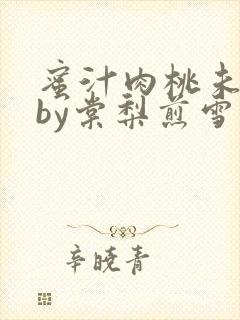 蜜汁肉桃未
by棠梨煎雪
辛晓青